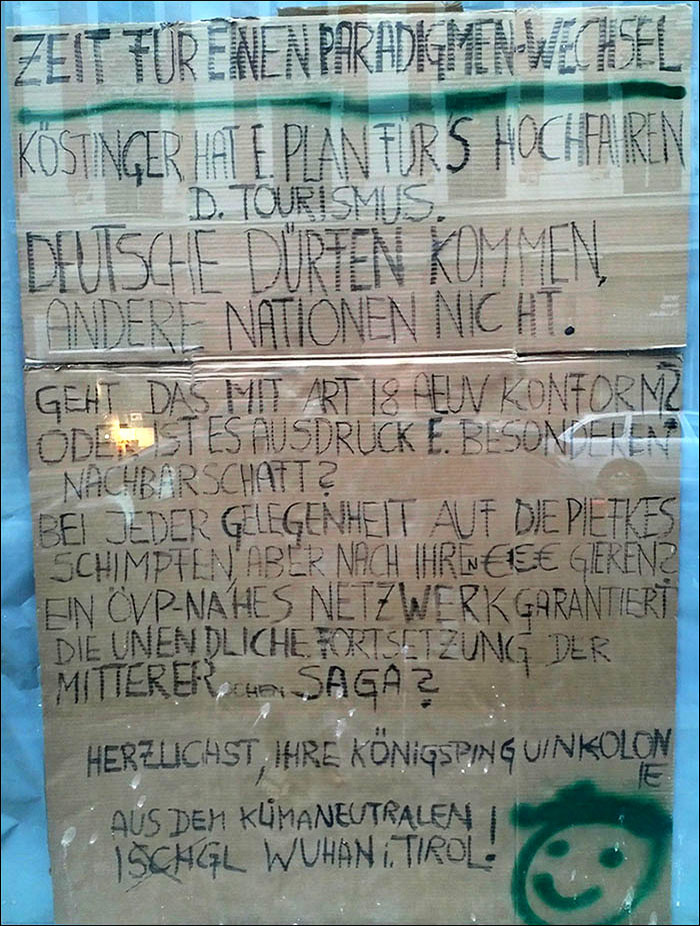 ZEIT FÜR EINEN PARADIGMEN-WECHSEL
KÖSTINGER HAT E. PLAN FÜR'S HOCHFAHREN
D. TOURISMUS.
DEUTSCHE DÜRFEN KOMMEN,
ANDERE NATIONEN NICHT.
GEHT DAS MIT ART 18 AEUV KONFORM?
ODER IST ES AUSDRUCK E. BESONDEREN
NACHBARSCHAFT?
BEI JEDER GELEGENHEIT AUF DIE PIEFKES
SCHIMPFEN, ABER NACH IHREN €€€ GIEREN?
EIN ÖVP-NAHES NETZWERK GARANTIERT
DIE UNENDLICHE FORTSETZUNG DER
MITTERER SCHEN SAGA?
HERZLICHST, IHRE KÖNIGSPINGUINKOLON
IE
AUS DEM KLIMANEUTRALEN
ISCHGL WUHAN i. TIROL!